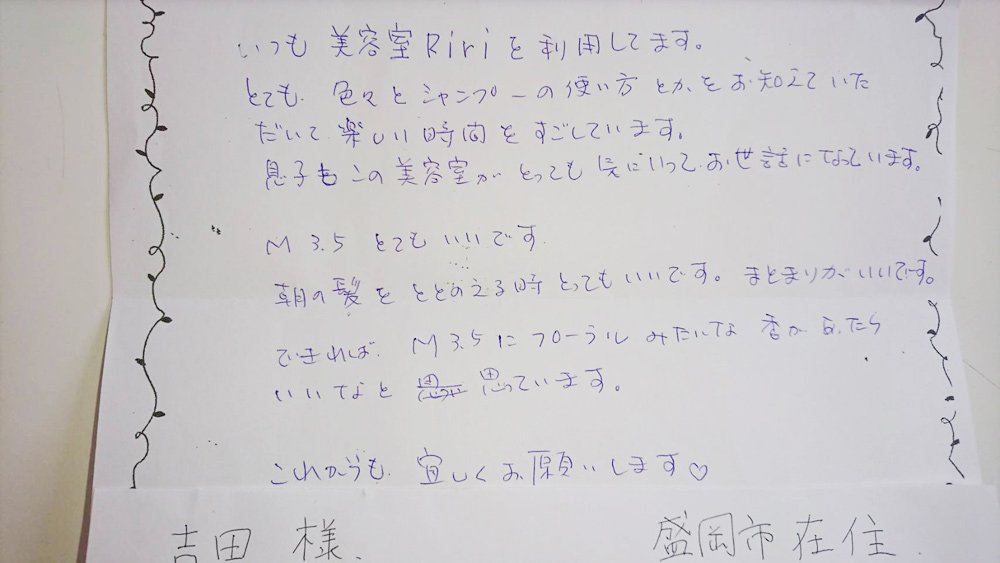 いつも 美容室Ririを利用してます。
とても 色々とシャンプーの使い方とかをお知えていた
だいて楽しい時間をすごしています。
息子もこの美容室がとっても気にいってお世話になっています。
M3.5 とてもいいです
朝の髪をととのえる時とってもいいです。まとまりがいいです。
できれば M3.5にフローラルみたいな香があったら
いいなと 思っています。
これからも 宜しくお願いします♡
吉田 様、
盛岡市在住